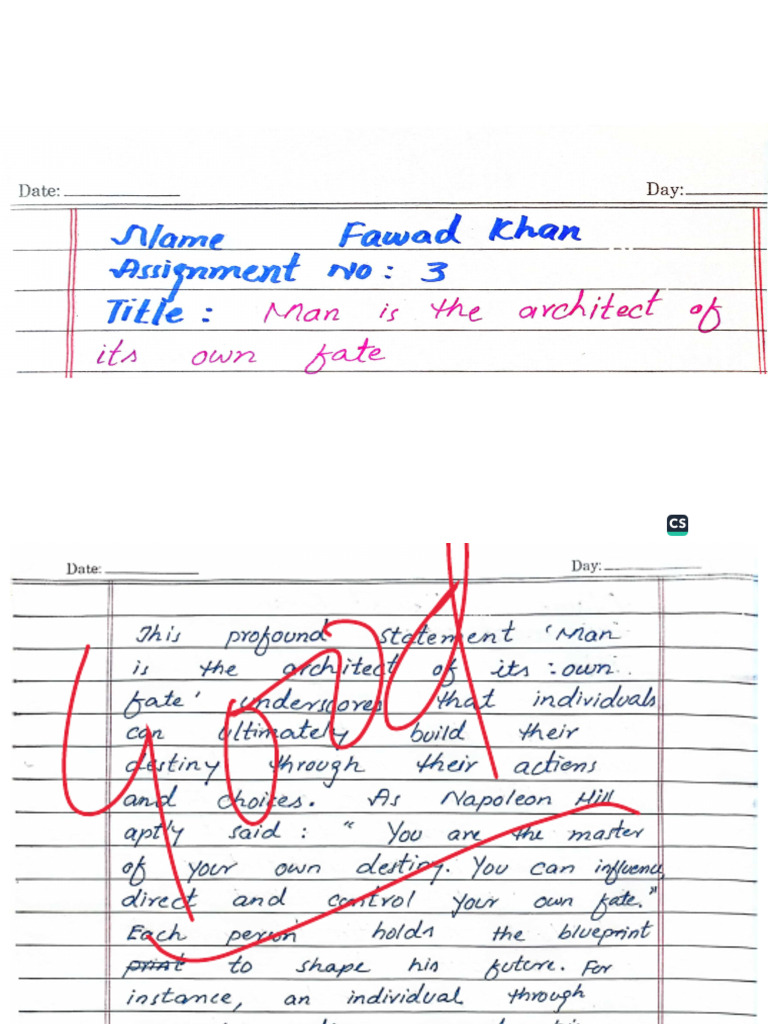 Date: Day:
Name Fawad Khan
Assignment No: 3
Title: Man is the architect of
its own fate
CS
Date: Day:
This profound statement 'Man
is the architect of its : own
fate' underscores that individuals
can ultimately build their
destiny through their actions
and choices. As Napoleon Hill
aptly said : " You are the master
of your own destiny. You can influence,
direct and control your own fate."
Each person holds the blueprint
print to shape his future. For
instance, an individual through
Good